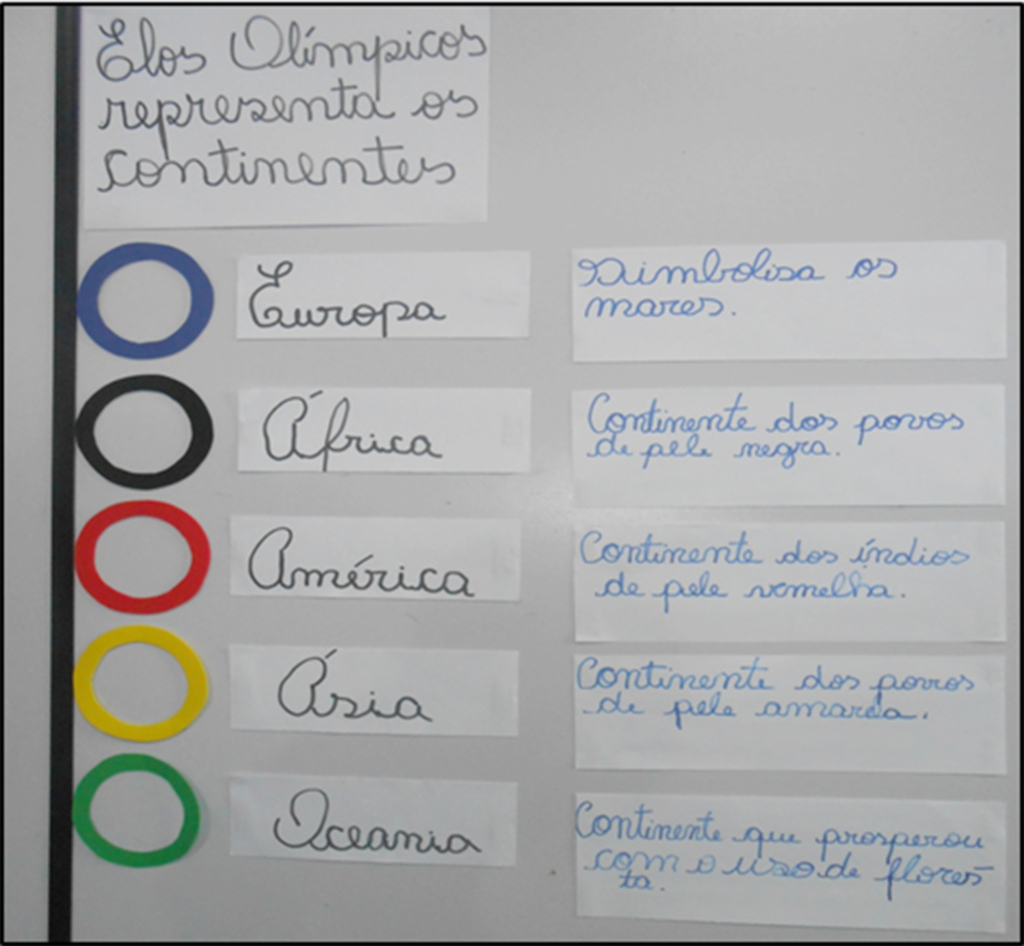 Elos Olímpicos
representa os
continentes
Europa
Simbolisa os
mares.
África
Continente dos povos
de pele negra.
América
Continente dos índios
de pele vermelha.
Ásia
Continente dos povos
de pele amarela.
Oceania
Continente que prosperou
com o uso de flores-
ta.